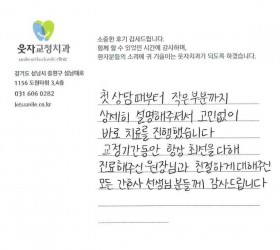 웃자교정치과
smile orthodontic clinic
경기도 성남시 중원구 성남대로
1156 도원타워 3,4층
031 606 0282
letssmile.co.kr
소중한 후기 감사드립니다.
함께 할 수 있었던 시간에 감사하며,
환자분들의 소리에 귀 기울이는 웃자치과가 되도록 하겠습니다.
첫 상담때부터 작은부분까지
상세히 설명해주셔서 고민없이
바로 치료를 진행했습니다
교정기간동안 항상 최선을 다해
진료해주신 원장님과 친절하게 대해주신
모든 간호사 선생님분들께 감사드립니다